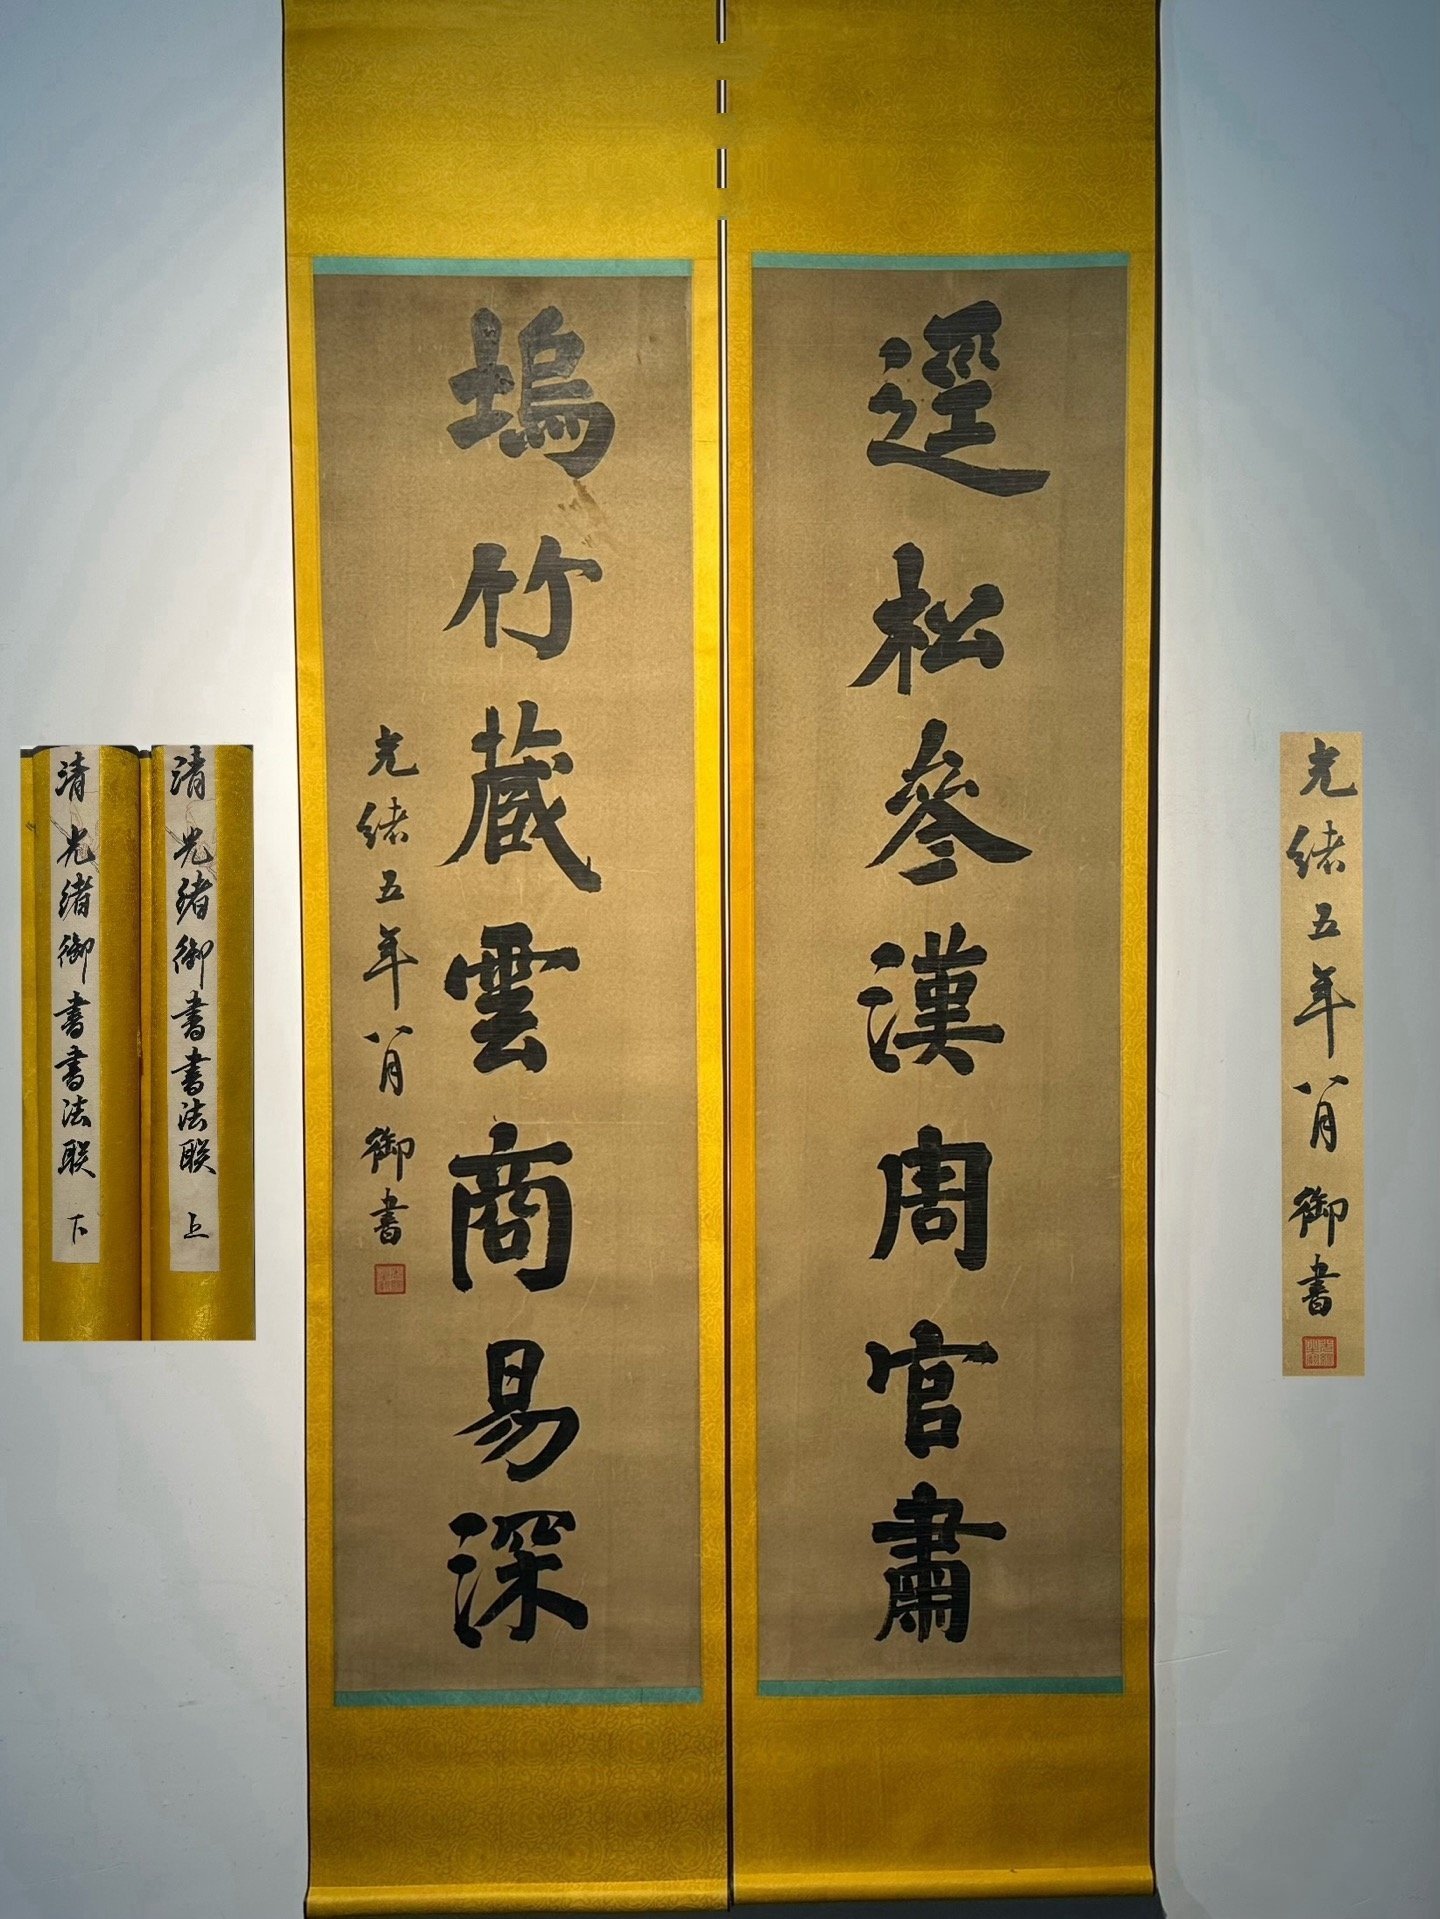 逕松參漢周官肅
塢竹蔵雲商易深
光緒五年八月御書
清光緒御書書法联 上
清光緒御書書法联 下
光緒五年八月御書